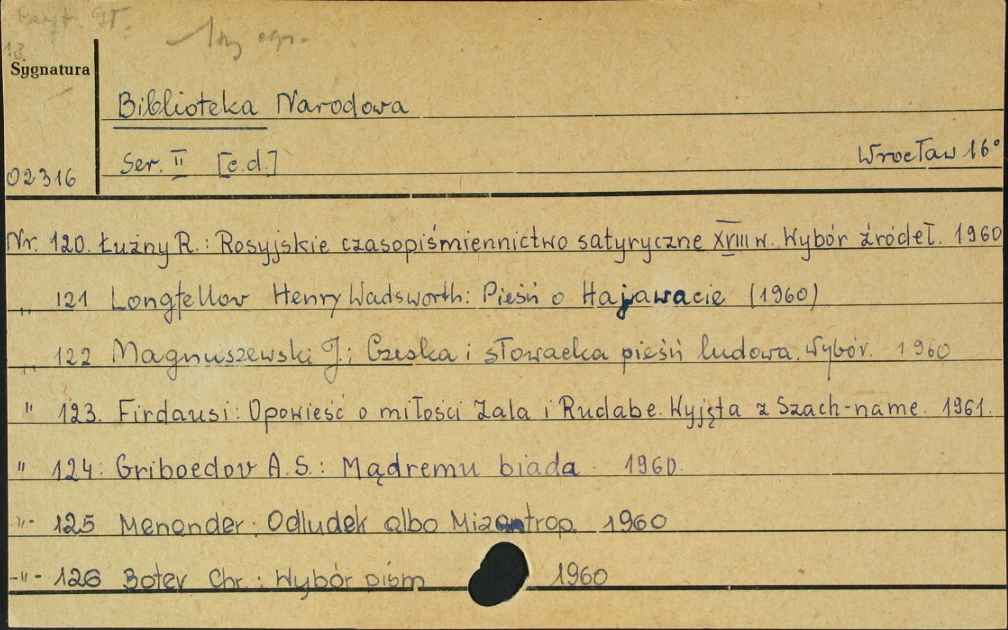 Sygnatura
Biblioteka Narodowa
Ser. II [c.d.] Wrocław 16°
02316
Nr. 120. Łużny R.: Rosyjskie czasopiśmiennictwo satyryczne XVIII w. Wybór źródeł. 1960
" 121 Longfellov Henry Wadsworth: Pieśń o Hajawacie (1960)
" 122 Magnuszewski J.; Czeska i słowacka pieśń ludowa. Wybór. 1960
" 123. Firdausi: Opowieść o miłości Zala i Rudabe. Wyjęta z Szach-name. 1961.
" 124: Griboedov A.S.: Mądremu biada. 1960.
-"- 125 Menander: Odludek albo Mizantrop 1960
-"- 126 Botev Chr.: Wybór pism 1960